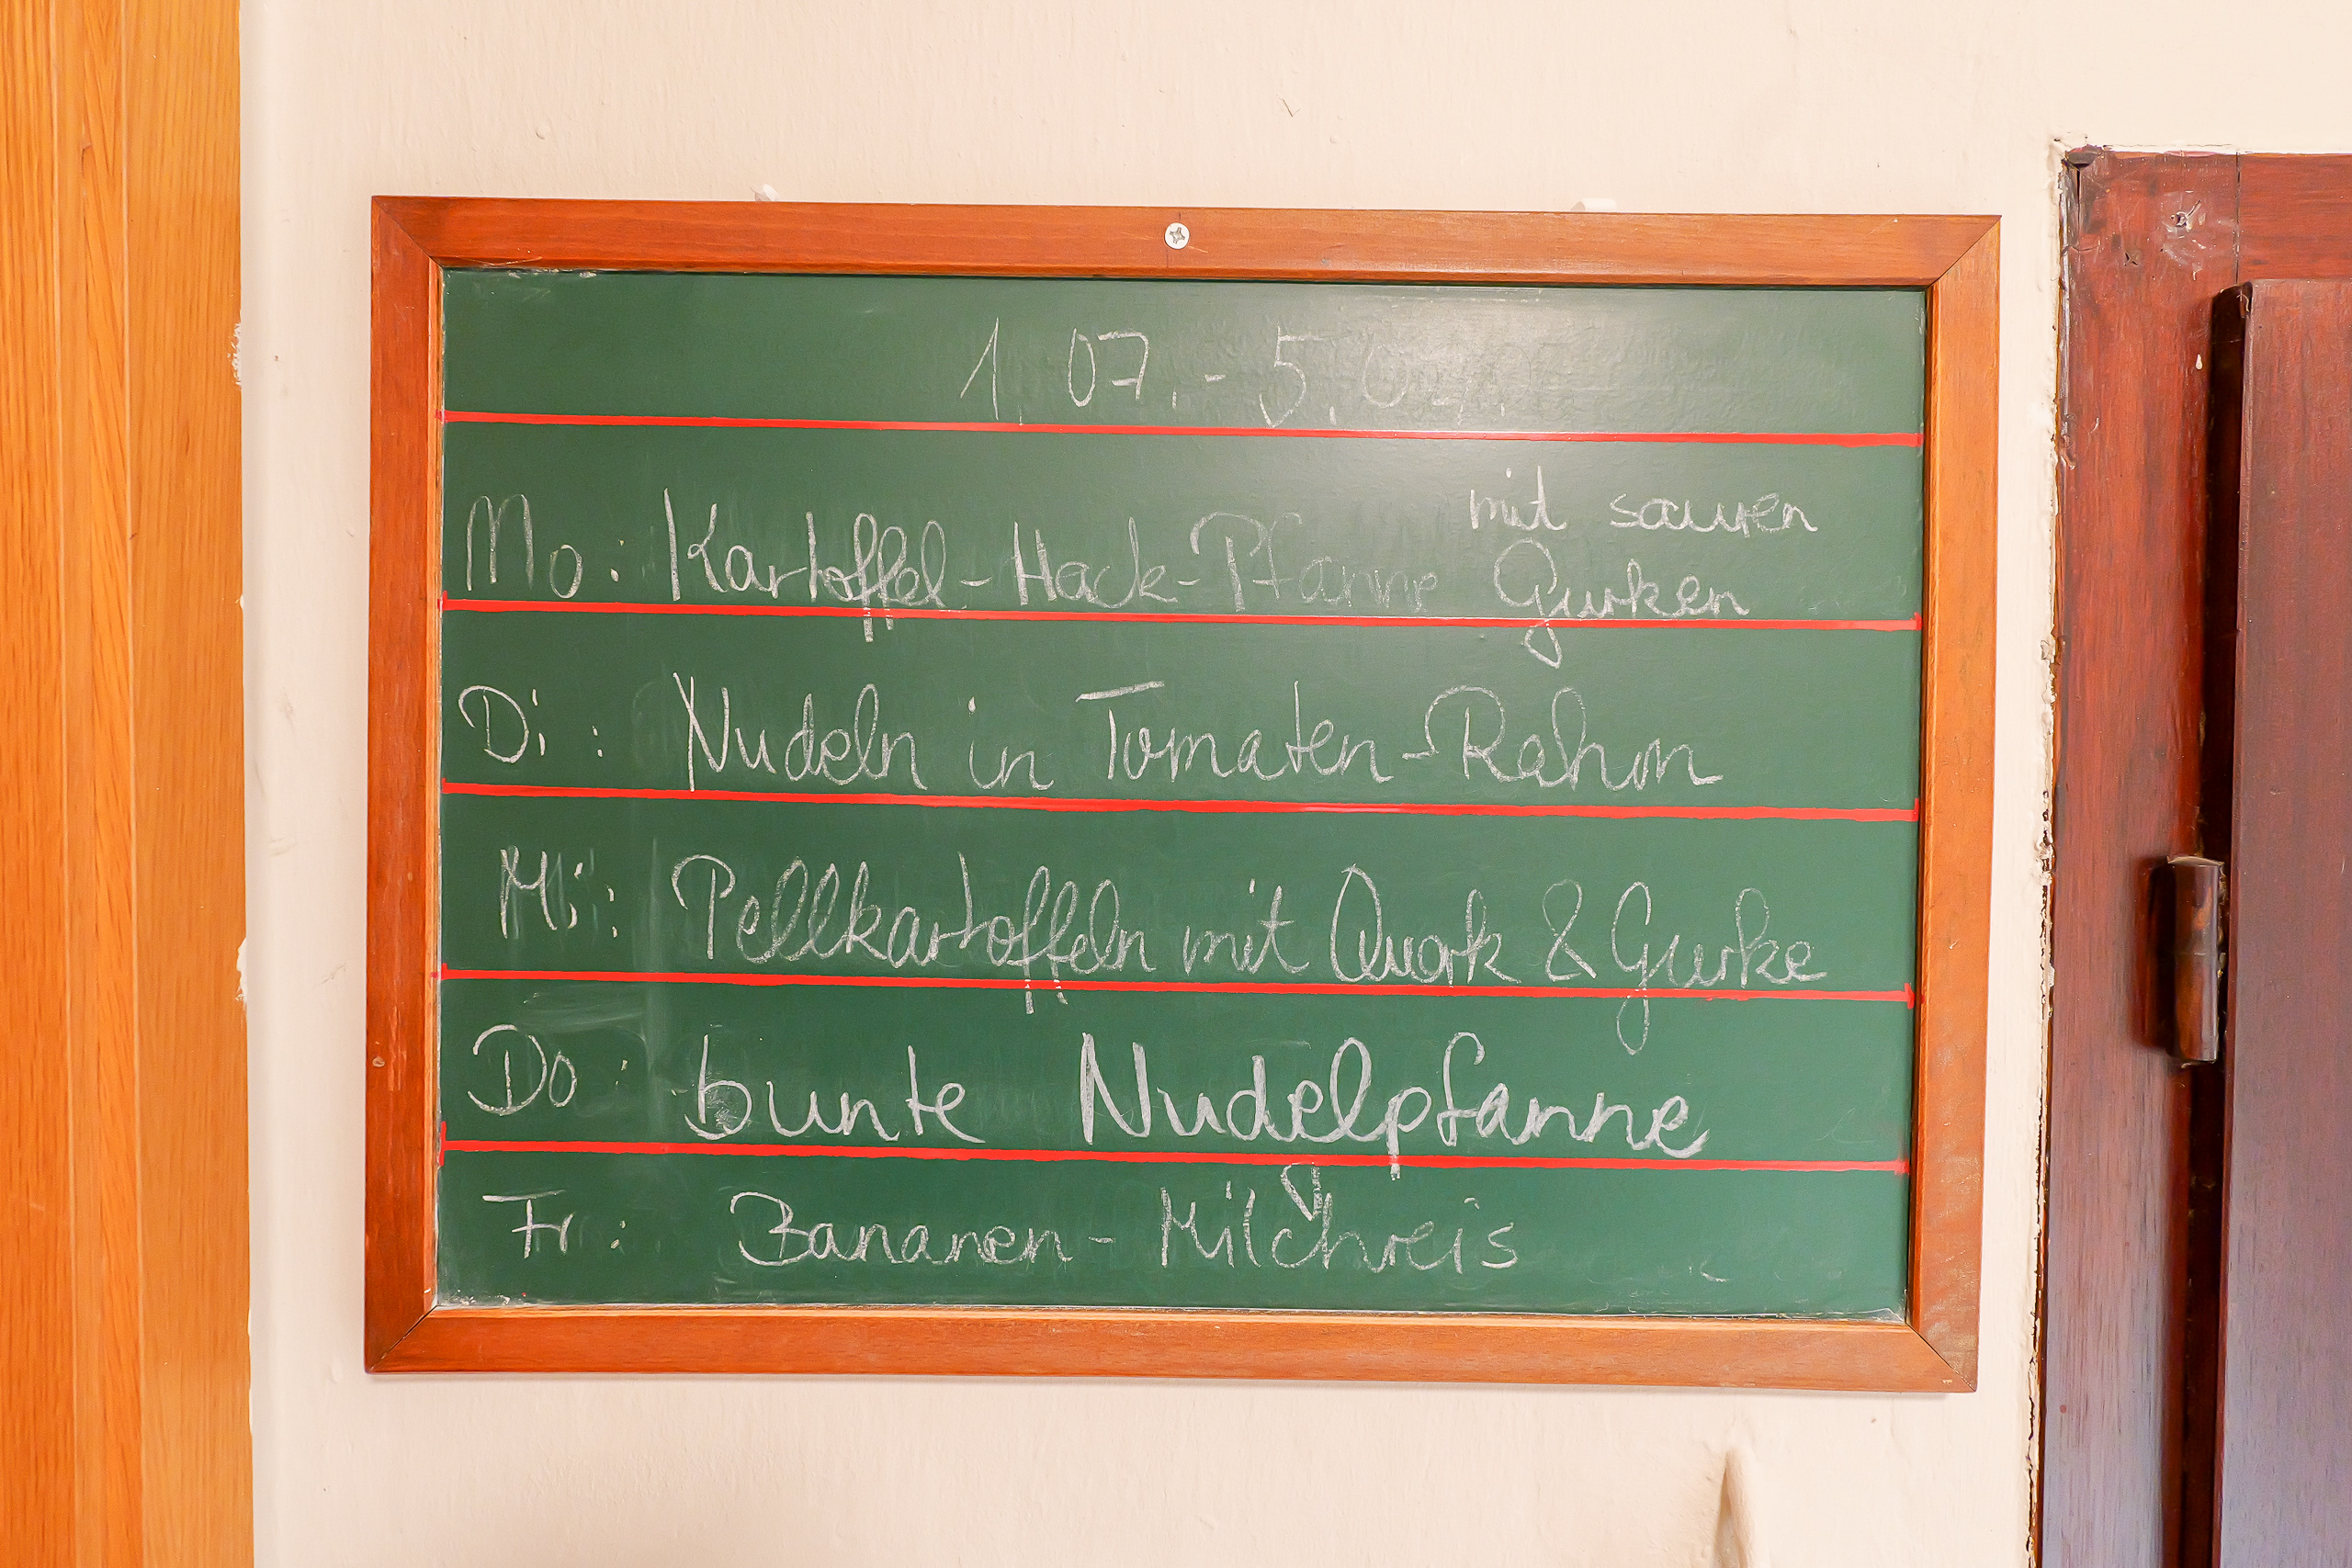 1. 07. - 5.07.
Mo: Kartoffel-Hack-Pfanne mit sauren
Gurken
Di: Nudeln in Tomaten-Rahm
Mi: Pellkartoffeln mit Quark & Gurke
Do: bunte Nudelpfanne
Fr: Bananen-Milchreis